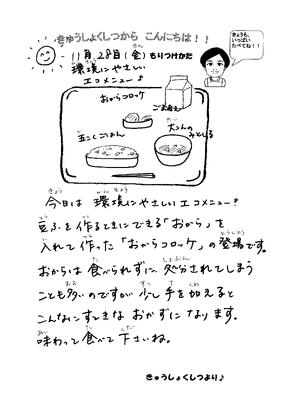 きゅうしょくしつから こんにちは!!
きょうも、
いっぱい
たべてね!!
11月28日(金) もりつけかた
環境にやさしい
エコメニュー♪
おからコロッケ
ごまあえ
五こくごはん
大こんのみそしる
今日は 環境にやさしいエコメニュー!
豆ふを作るときにできる「おから」を
入れて作った「おからコロッケ」の登場です。
おからは食べられずに処分されてしまう
ことも多いのですが少し手を加えると
こんなにすてきなおかずになります。
味わって食べて下さいね。
きゅうしょくしつより♪